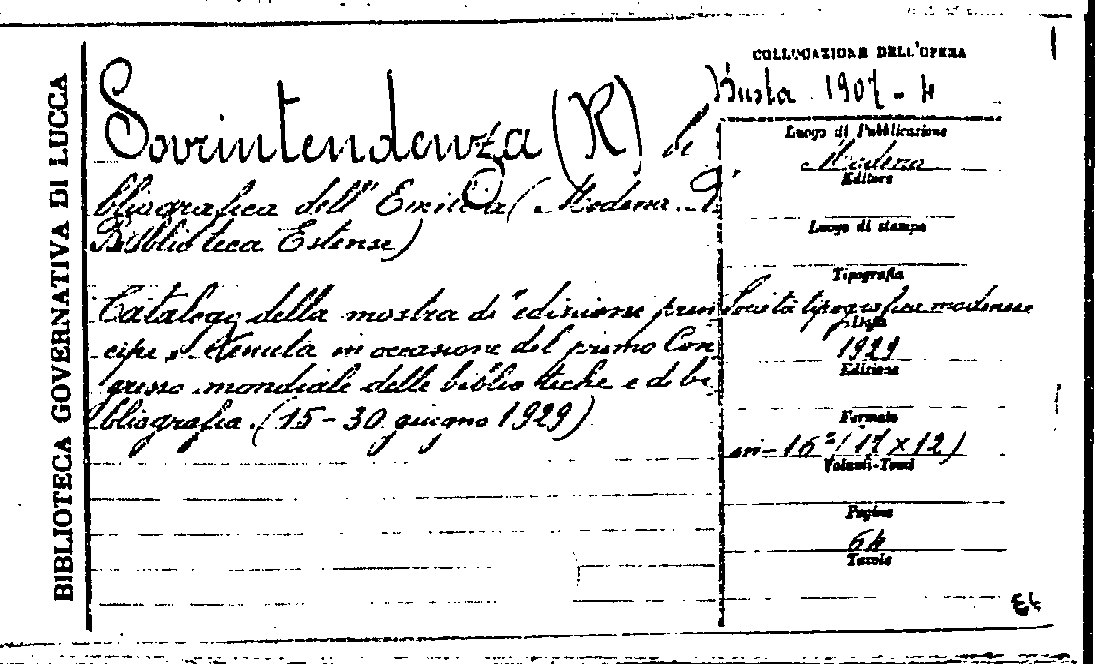 BIBLIOTECA GOVERNATIVA DI LUCCA
Sovrintendenza (R) bi
bliografica dell' Emilia (Modena. R.
Biblioteca Estense)
Catalogo della mostra di edizione prin
cipe, tenuta in occasione del primo Con
gresso mondiale delle biblioteche e di bi
bliografia. (15-30 giugno 1929)
COLLOCAZIONE DELL'OPERA
Busta 1907-4
Luogo di Pubblicazione
Modena
Editore
Luogo di stampa
Tipografia
Società tipografica modenese
Data
1929
Edizione
Formato
in-16º (17x12)
Volumi-Tomi
Pagine
64
Tavole